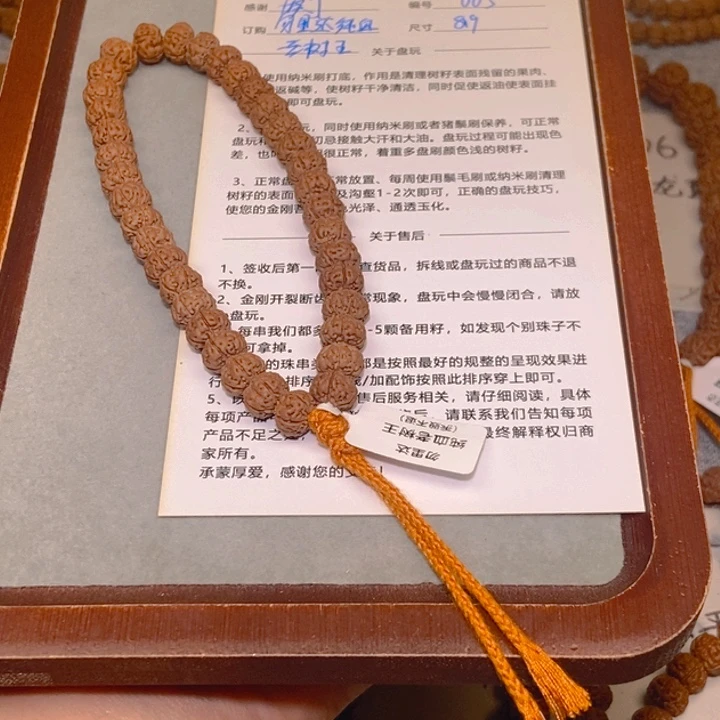 感谢
编号 003
订购 勿里达纯血
尺寸 8.9
老树王
关于盘玩
使用纳米刷打底，作用是清理树籽表面残留的果肉、
返碱等，使树籽干净清洁，同时促使返油使表面挂
即可盘玩。
2、 玩，同时使用纳米刷或者猪鬃刷保养，可正常
盘玩 切忌接触大汗和大油。盘玩过程可能出现色
差，也 很正常，着重多盘刷颜色浅的树籽。
3、正常盘 常放置、每周使用鬃毛刷或纳米刷清理
树籽的表面 及沟壑1-2次即可，正确的盘玩技巧，
使您的金刚菩 光泽、通透玉化。
关于售后
1、签收后第一 查货品，拆线或盘玩过的商品不退
不换。
2、金刚开裂断齿 常现象，盘玩中会慢慢闭合，请放
盘玩。
每串我们都多 -5颗备用籽，如发现个别珠子不
可拿掉。
的珠串 都是按照最好的规整的呈现效果进
行 排序 /加配饰按照此排序穿上即可。
5、以 售后服务相关，请仔细阅读，具体
每项产品 后，请联系我们告知每项
产品不足之 最终解释权归商
家所有。
承蒙厚爱，感谢您的支 ！
勿里达
纯血老树王
(类毁不退)
06
龙